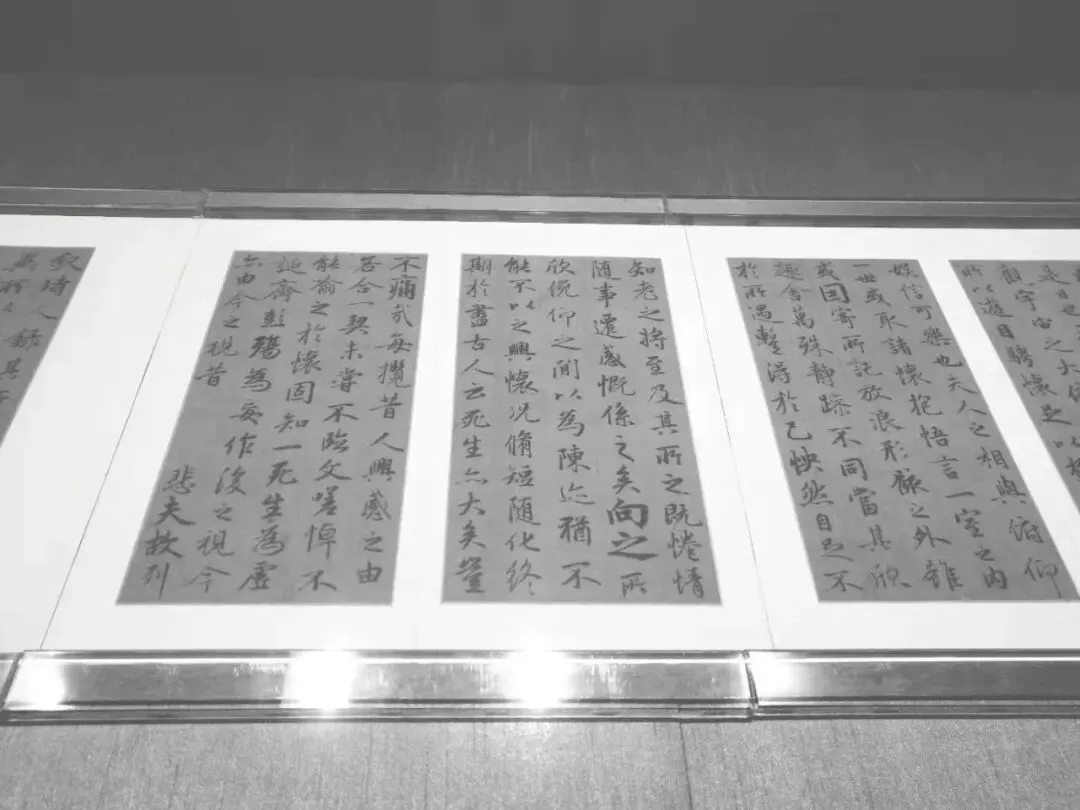 是日也
觀宇宙之大
所以遊目騁懷足以極
娛信可樂也夫人之相與俯仰
一世或取諸懷抱悟言一室之內
或因寄所託放浪形骸之外雖
趣舍萬殊靜躁不同當其欣
於所遇蹔得於己怏然自足不
知老之將至及其所之既惓情
随事遷感慨係之矣向之所
欣俛仰之閒以為陳迹猶不
能不以之興懷况脩短随化終
期於盡古人云死生亦大矣豈
不痛哉每攬昔人興感之由
若合一契未嘗不臨文嗟悼不
能喻之於懷固知一死生為虛
誕齊彭殤為妄作後之視今
亦由今之視昔
悲夫故列
叙時人録其所